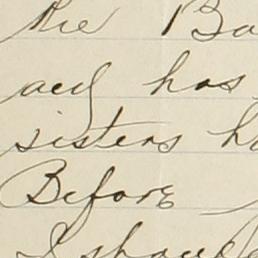 the Ba
has
sisters ha
Before
I shoul